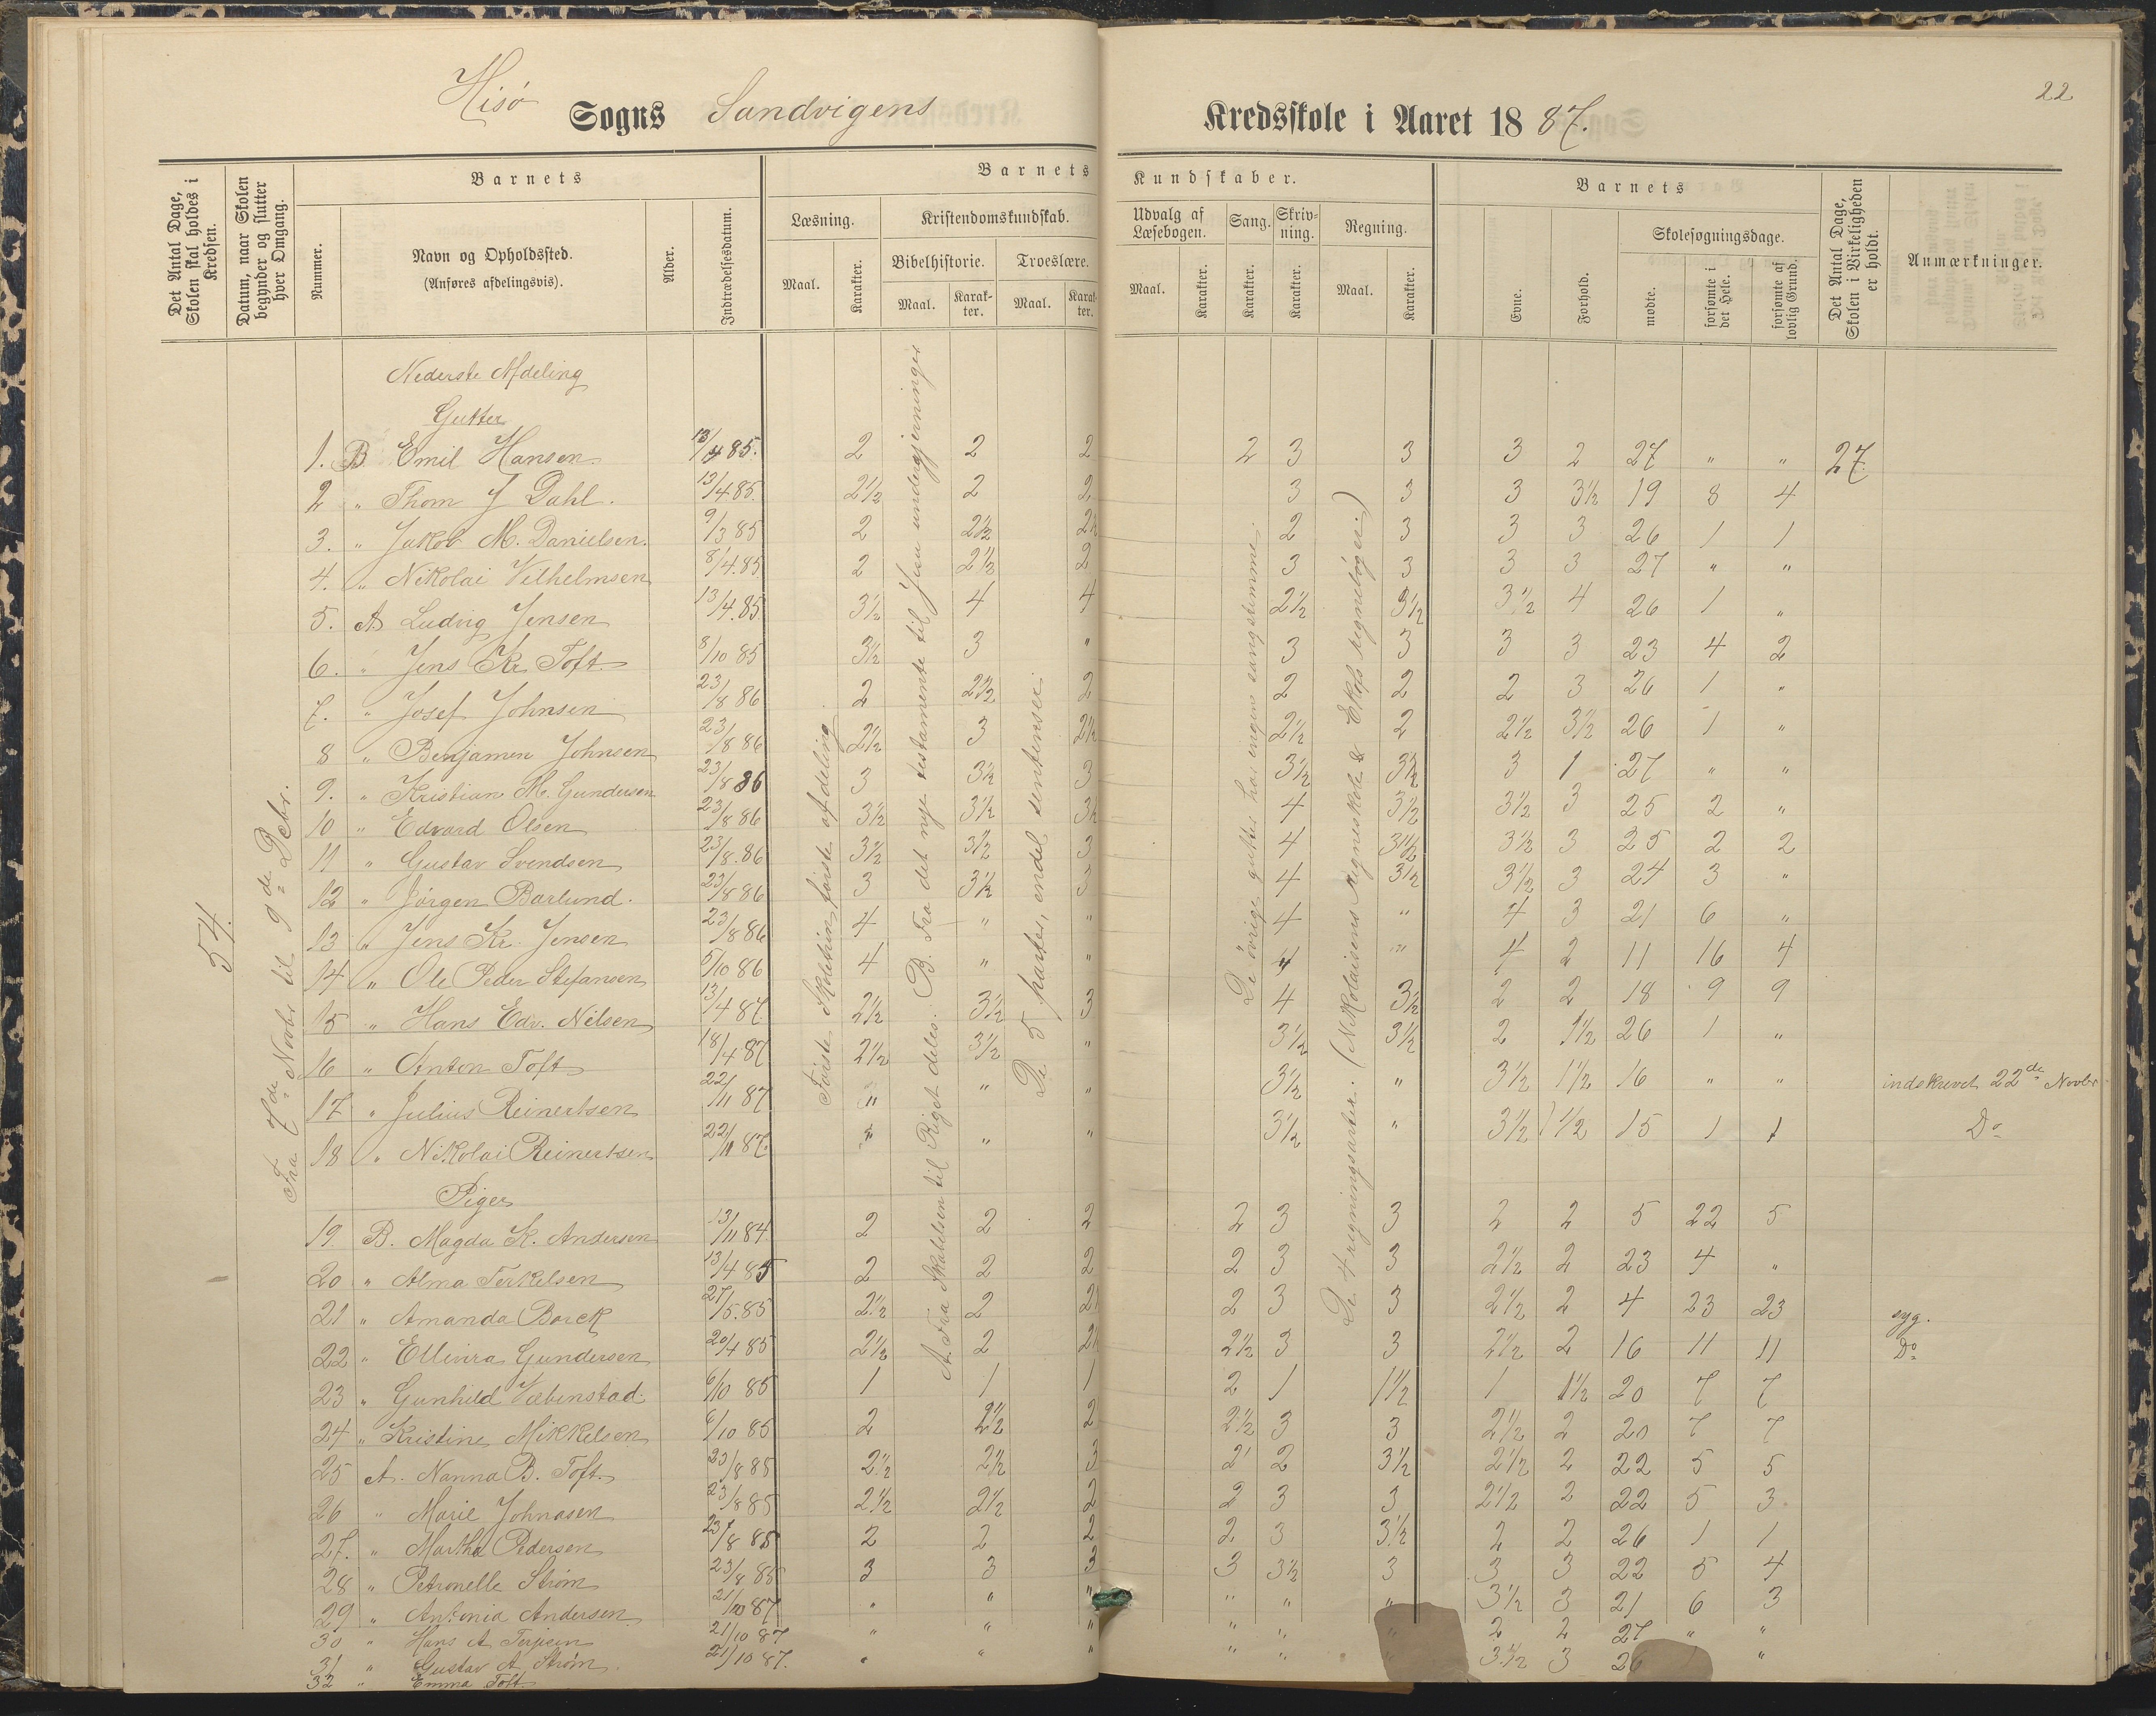 22
Hisø Sogns Sandvigens Kredsskole i Aaret 1887.
Det Antal Dage, Skolen skal holdes i Kredsen.
Datum, naar Skolen begynder og slutter hver Omgang.
Barnets
Nummer.
Navn og Opholdssted.
(Anføres afdelingsvis).
Alder.
Indtrædelsesdatum.
Barnets Kundskaber.
Læsning.
Maal.
Karakter.
Kristendomskundskab.
Bibelhistorie.
Maal.
Karakter.
Troeslære.
Maal.
Karakter.
Udvalg af Læsebogen.
Maal.
Karakter.
Sang.
Karakter.
Skrivning.
Karakter.
Regning.
Maal.
Karakter.
Barnets
Evne.
Forhold.
Skolesøgningsdage.
mødte.
forsømte i det Hele.
forsømte af lovlig Grund.
Det Antal Dage, Skolen i Virkeligheden er holdt.
Anmærkninger.
54.
Fra 7de Novbr til 9de Debr.
Første Skoletrin, første afdeling.
A. Fra Skabelsen til Riget deles. B. Fra det nye testamente til Jesu undergjerninger
De 5 parter, endel sentenser.
De øvrige gutter har ingen sangstemme.
De 4 regningsarter. (Nikolaisens Regneskole & Ekols regnebøger.)
Nederste Afdeling
Gutter
1. B Emil Hansen 13/4 85. 2 2 2 2 3 3 3 2 27 " " 27
2 " Thom J Dahl. 13/4 85. 2½ 2 2 3 3 3 3½ 19 8 4
3. " Jakob M. Danielsen. 9/3 85 2 2½ 2½ 2 3 3 3 26 1 1
4. " Nikolai Vilhelmsen 8/4.85 2 2½ 2 3 3 3 3 27 " "
5. A Ludvig Jensen 13/4.85 3½ 4 4 2½ 3½ 3½ 4 26 1 "
6. " Jens Kr. Toft 8/10 85 3½ 3 " 3 3 3 3 23 4 2
7. " Josef Johnsen 23/8 86 2 2½ 2 2 2 2 3 26 1 "
8 " Benjamen Johnsen 23/8 86 2½ 3 2½ 2½ 2 2½ 3½ 26 1 "
9. " Kristian M. Gundersen 23/8 86 3 3½ 3 3½ 3½ 3 1 27 " "
10 " Edvard Olsen 23/8 86 3½ 3½ 3½ 4 3½ 3½ 3 25 2 "
11 " Gustav Svendsen 23/8.86 3½ 3½ 3 4 3½ 3½ 3 25 2 2
12 " Jørgen Barlund. 23/8 86 3 3½ 3 4 3½ 3½ 3 24 3 "
13 " Jens Kr. Jensen 23/8 86 4 " " 4 " 4 3 21 6 "
14 " Ole Peder Stefansen 5/10 86 4 " " 4 " 4 2 11 16 4
15 " Hans Edv. Nilsen 13/4 87. 2½ 3½ 3 4 3½ 2 2 18 9 9
16 " Anton Toft 18/4 87. 2½ 3½ " 3½ 3½ 2 1½ 26 1 "
17 " Julius Reinertsen 22/11 87 " " " 3½ " 3½ 1½ 16 " " indskrevet 22de Novbr
18 " Nikolai Reinertsen 22/11 87. " " " 3½ " 3½ 1½ 15 1 1 Do
Piger
19 B. Magda K. Andersen 13/11 84 2 2 2 2 3 3 2 2 5 22 5
20 " Alma Terkelsen 13/4 85 2 2 2 2 3 3 2½ 2 23 4 "
21 " Amanda Borck 27/5.85 2½ 2 2 3 3 2½ 2 4 23 23 syg.
22 " Ellivira Gundersen 20/4 85 2½ 2 2½ 3 3 2½ 2 16 11 11 Do
23 " Gunhild Væbenstad. 6/10 85 1 1 1 2 1 1½ 1 1½ 20 7 7
24 " Kristine Mikkelsen 6/10 85 2 2½ 2 2½ 3 3 2½ 2 20 7 7
25 A. Nanna B. Toft. 23/8 85 2½ 2½ 3 2 2 3½ 2½ 2 22 5 5
26 " Marie Johnasen 23/8 85 2½ 2½ 2 2 3 3 2½ 2 22 5 3
27. " Martha Pedersen 23/8 85 2 2 2 2 3 3½ 2 2 26 1 1
28 " Petronelle Strøm 23/8 85 3 3 3 3 3½ 3 3 3 22 5 4
29 " Antonia Andersen 21/10 87 " " " " " " 3½ 3 21 6 3
30 " Hans A Terjesen 21/10 87 " " " " " " 2 2 27 " "
31 " Gustav A. Strøm. 21/10 87. " " " " " 3½ 3 26 "
32 " Emma Toft